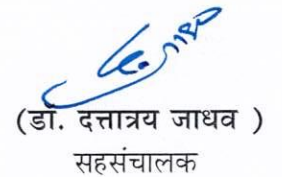 (डॉ. दत्तात्रय जाधव )
सहसंचालक